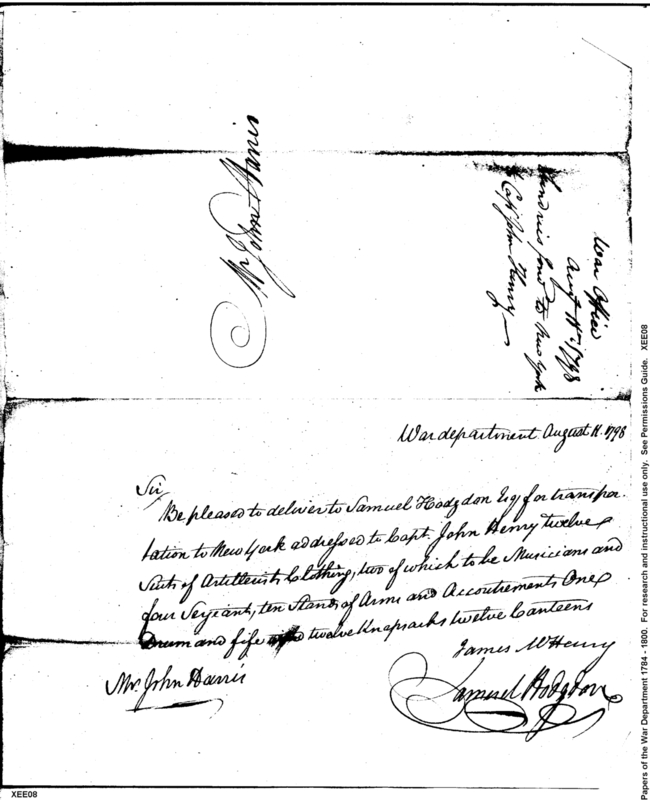 Mr John Harris
War Office
Augt 11th 1798
Sundries for to New York
Capt John Henry
War department August 11. 1798
Sir
Be pleased to deliver to Samuel Hodgdon Esq for transpor-
tation to New York addressed to Capt. John Henry twelve
Suits of Artillerists Clothing, two of which to be Musicians and
four Serjeants, ten Stands of Arms and Accoutrements One
Drum and fife twelve Knapsacks twelve Canteens
James McHenry
Mr. John Harris
Samuel Hodgdon
XEE08
Papers of the War Department 1784 - 1800. For research and instructional use only. See Permissions Guide. XEE08